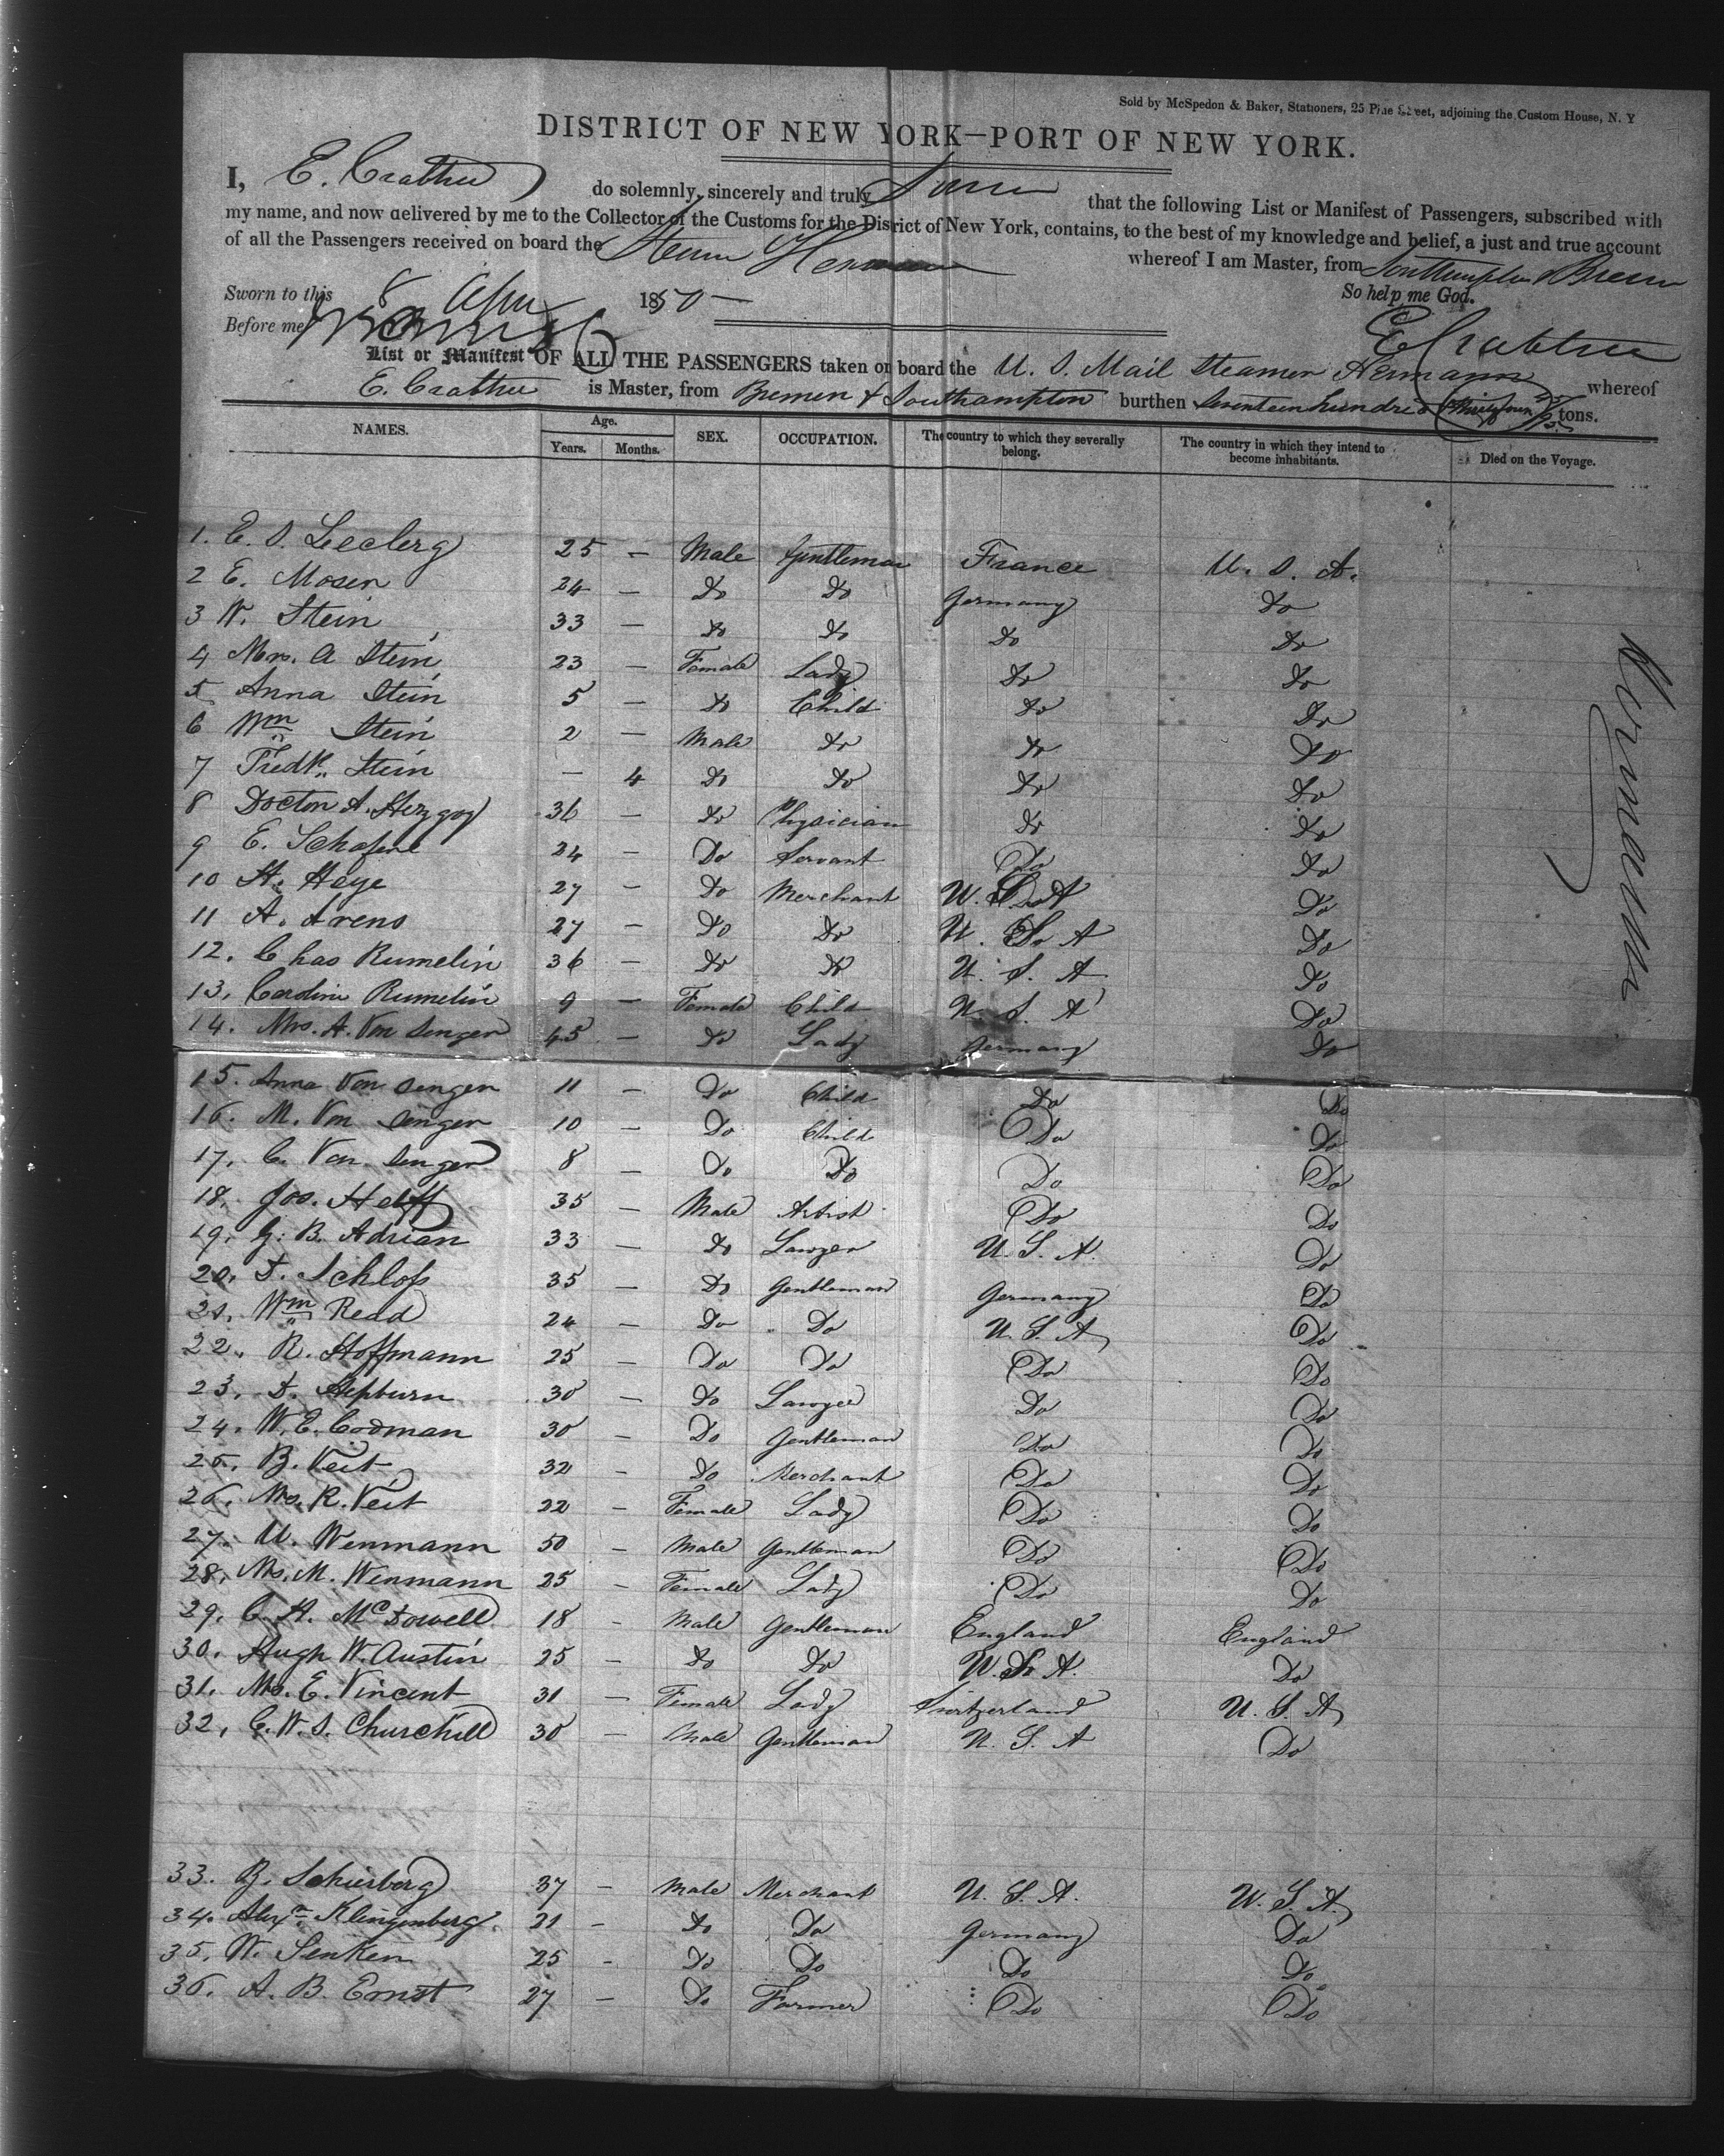 Sold by McSpedon & Baker, Stationers, 25 Pine Street, adjoining the Custom House, N. Y
DISTRICT OF NEW YORK—PORT OF NEW YORK.
I, E. Crabtree do solemnly, sincerely and truly Swear that the following List or Manifest of Passengers, subscribed with
my name, and now delivered by me to the Collector of the Customs for the District of New York, contains, to the best of my knowledge and belief, a just and true account
of all the Passengers received on board the Steamer Hermann whereof I am Master, from Southampton & Bremen
Sworn to this 8 April 1850 — So help me God.
Before me E Crabtree
List or Manifest OF ALL THE PASSENGERS taken on board the U. S. Mail Steamer Hermann whereof
E. Crabtree is Master, from Bremen & Southampton burthen Seventeen hundred tons.
NAMES. Age. Years. Months. SEX. OCCUPATION. The country to which they severally belong. The country in which they intend to become inhabitants. Died on the Voyage.
1. E. S. Leclerg 25 — Male Gentleman France U. S. A.
2 E. Moser 24 — Do Do Germany Do
3 W. Stein 33 — Do Do Do Do
4 Mrs. A Stein 23 — Female Lady Do Do
5 Anna Stein 5 — Do Child Do Do
6 Wm Stein 2 — Male Do Do Do
7 Fredk. Stein — 4 Do Do Do Do
8 Doctor A. Herzgog 36 — Do Physician Do Do
9 E. Schafere 24 — Do Servant Do Do
10 H. Heye 27 — Do Merchant U. S. A Do
11 A. Arens 27 — Do Do U. S. A Do
12. Chas Rumelin 36 — Do Do U. S. A Do
13. Caroline Rumelin 9 — Female Child U. S. A Do
14. Mrs. A. Von Senger 45 — Do Lady Germany Do
15. Anna Von Senger 11 — Do Child Do Do
16. M. Von Senger 10 — Do Child Do Do
17. C. Von Senger 8 — Do Do Do Do
18. Jos. Helff 35 — Male Artist Do Do
19. G. B. Adrian 33 — Do Lawyer U. S. A. Do
20. F. Schloss 35 — Do Gentleman Germany Do
21. Wm Read 24 — Do Do U. S. A Do
22. R. Hoffmann 25 — Do Do Do Do
23. D. Hepburn 30 — Do Lawyer Do Do
24. W. E. Codman 30 — Do Gentleman Do Do
25. B. Veit 32 — Do Merchant Do Do
26. Mrs. R. Veit 22 — Female Lady Do Do
27. U. Wenmann 50 — Male Gentleman Do Do
28. Mrs. M. Wenmann 25 — Female Lady Do Do
29. C. H. McDowell 18 — Male Gentleman England England
30. Hugh W. Austin 25 — Do Do U. S. A. Do
31. Mrs. E. Vincent 31 — Female Lady Switzerland U. S. A
32. C. W. S. Churchill 30 — Male Gentleman U. S. A Do
33. B. Schierberg 37 — Male Merchant U. S. A. U. S. A.
34. Alexr. Klingenberg 21 — Do Do Germany Do
35. W. Senken 25 — Do Do Do Do
36. A. B. Ernst 27 — Do Farmer Do Do
Hermann